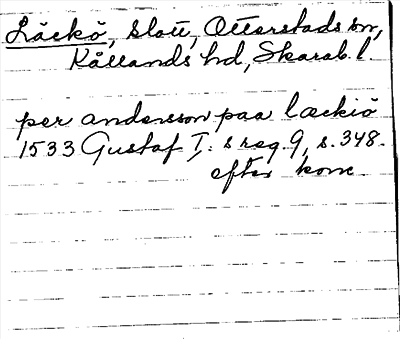 Läckö, slott, Otterstads sn,
Kållands hd, Skarab. l.
per andersson paa lackiö
1533 Gustaf I: s reg. 9, s. 348.
efter konc.